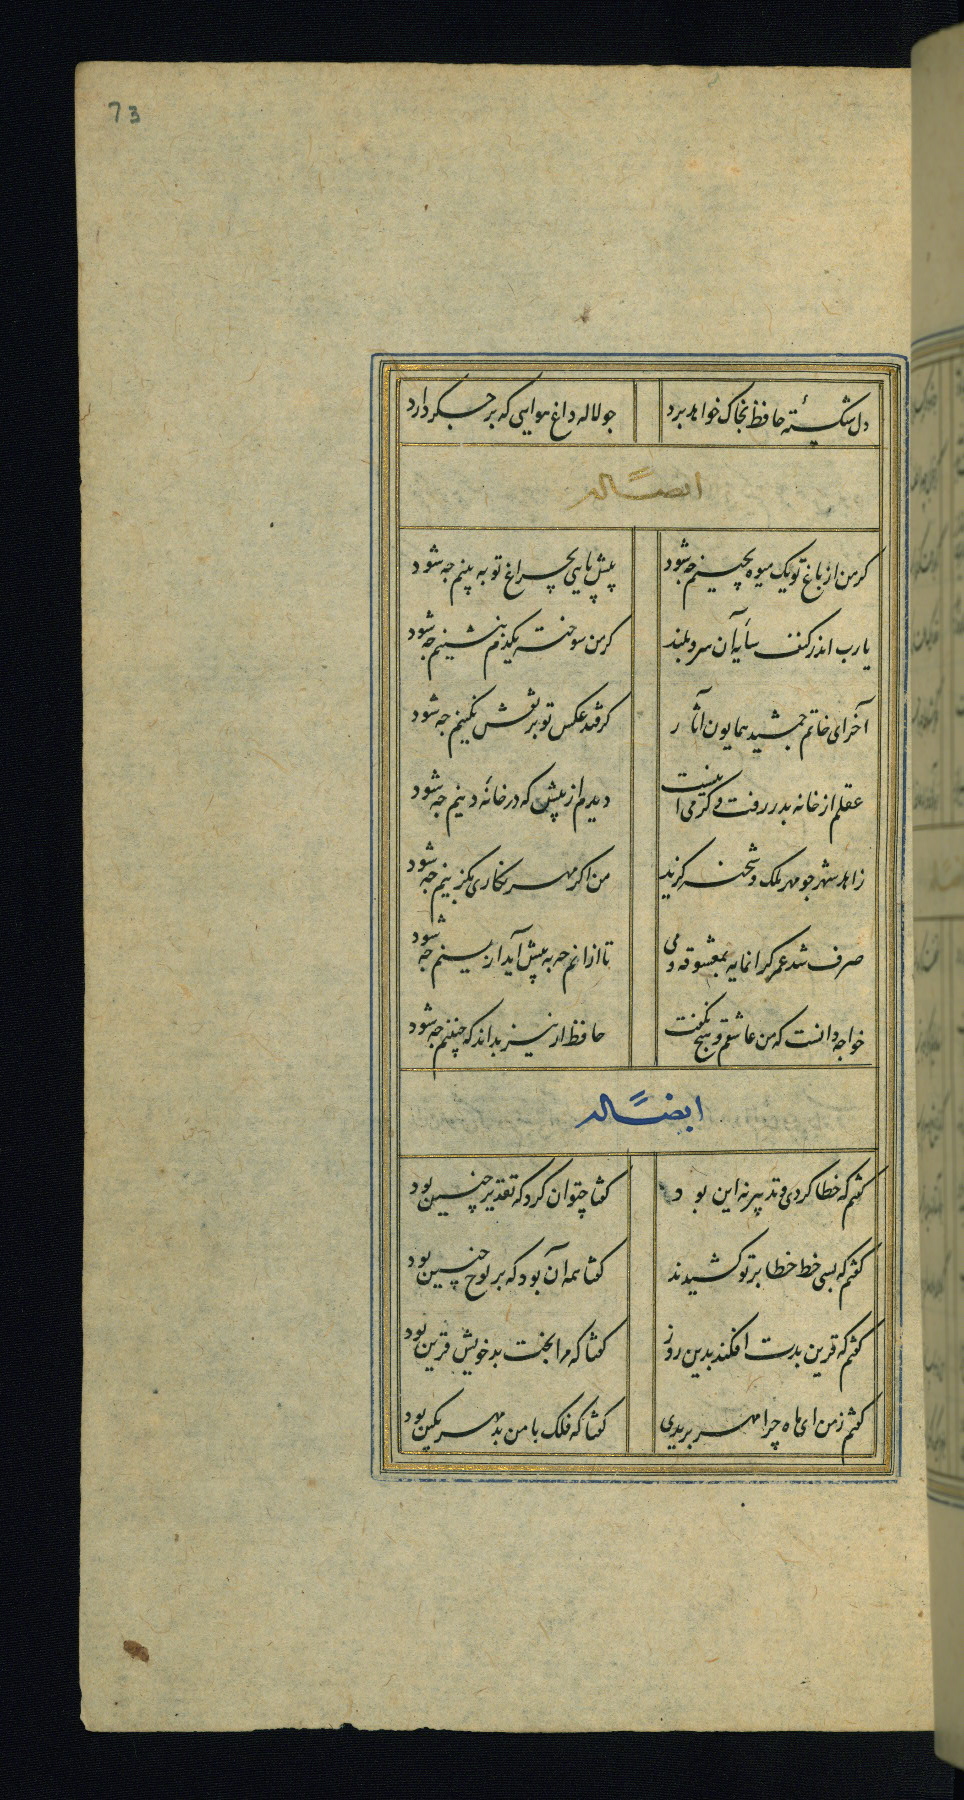 73
دل شکستهٔ حافظ بخاک خواهد برد
جو لاله داغ هوایی که بر جکر دارد
ایضاً له
کر من از باغ تو یک میوه بچینم جه شود
پیش پایی بچراغ تو به بینم جه شود
یا رب اندر کنف سایه آن سرو بلند
کر من سوخته یکدم بنشینم جه شود
آخر ای خاتم جمشید همایون آثار
کر فتد عکس تو بر نقش نکینم جه شود
عقلم از خانه بدر رفت و کر می اینست
دیدم از پیش که در خانهٔ دینم جه شود
زاهد شهر جو مهر ملک و شحنه کزید
من اکر مهر نکاری بکزینم جه شود
صرف شد عمر کرانمایه بمعشوقه و می
تا از انم جه به پیش آید ازینم جه شود
خواجه دانست که من عاشقم و هیج نکفت
حافظ ار نیز بداند که چنینم جه شود
ایضاً له
کفتم که خطا کردی و تدبیر نه این بود
کفتا چتوان کرد که تقدیر چنین بود
کفتم که بسی خط خطا بر تو کشیدند
کفتا همه آن بود که بر لوح جبین بود
کفتم که قرین بدت افکند بدین روز
کفتا که مرا بخت بد خویش قرین بود
کفتم ز من ای ماه چرا مهر بریدی
کفتا که فلک با من بد مهر بکین بود